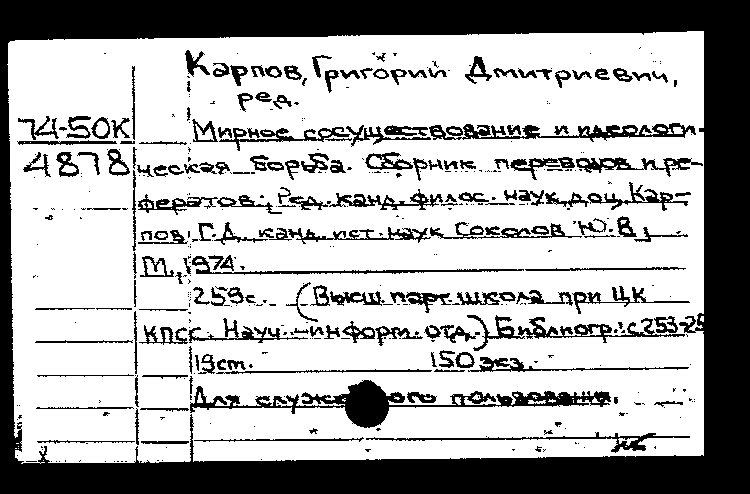 Карпов, Григорий Дмитриевич,
ред.
74-50К
Мирное сосуществование и идеологи-
4878
ческая борьба. Сборник переводов и ре-
фератов. Ред. канд. филос. наук доц. Кар-
пов Г.Д., канд. ист. наук Соколов Ю.В.,
М., 1974.
259с. (Высш. парт. школа при ЦК
КПСС. Науч.-информ. отд.) Библиогр.: с 253-25
19см. 150 экз.
Для пользования.